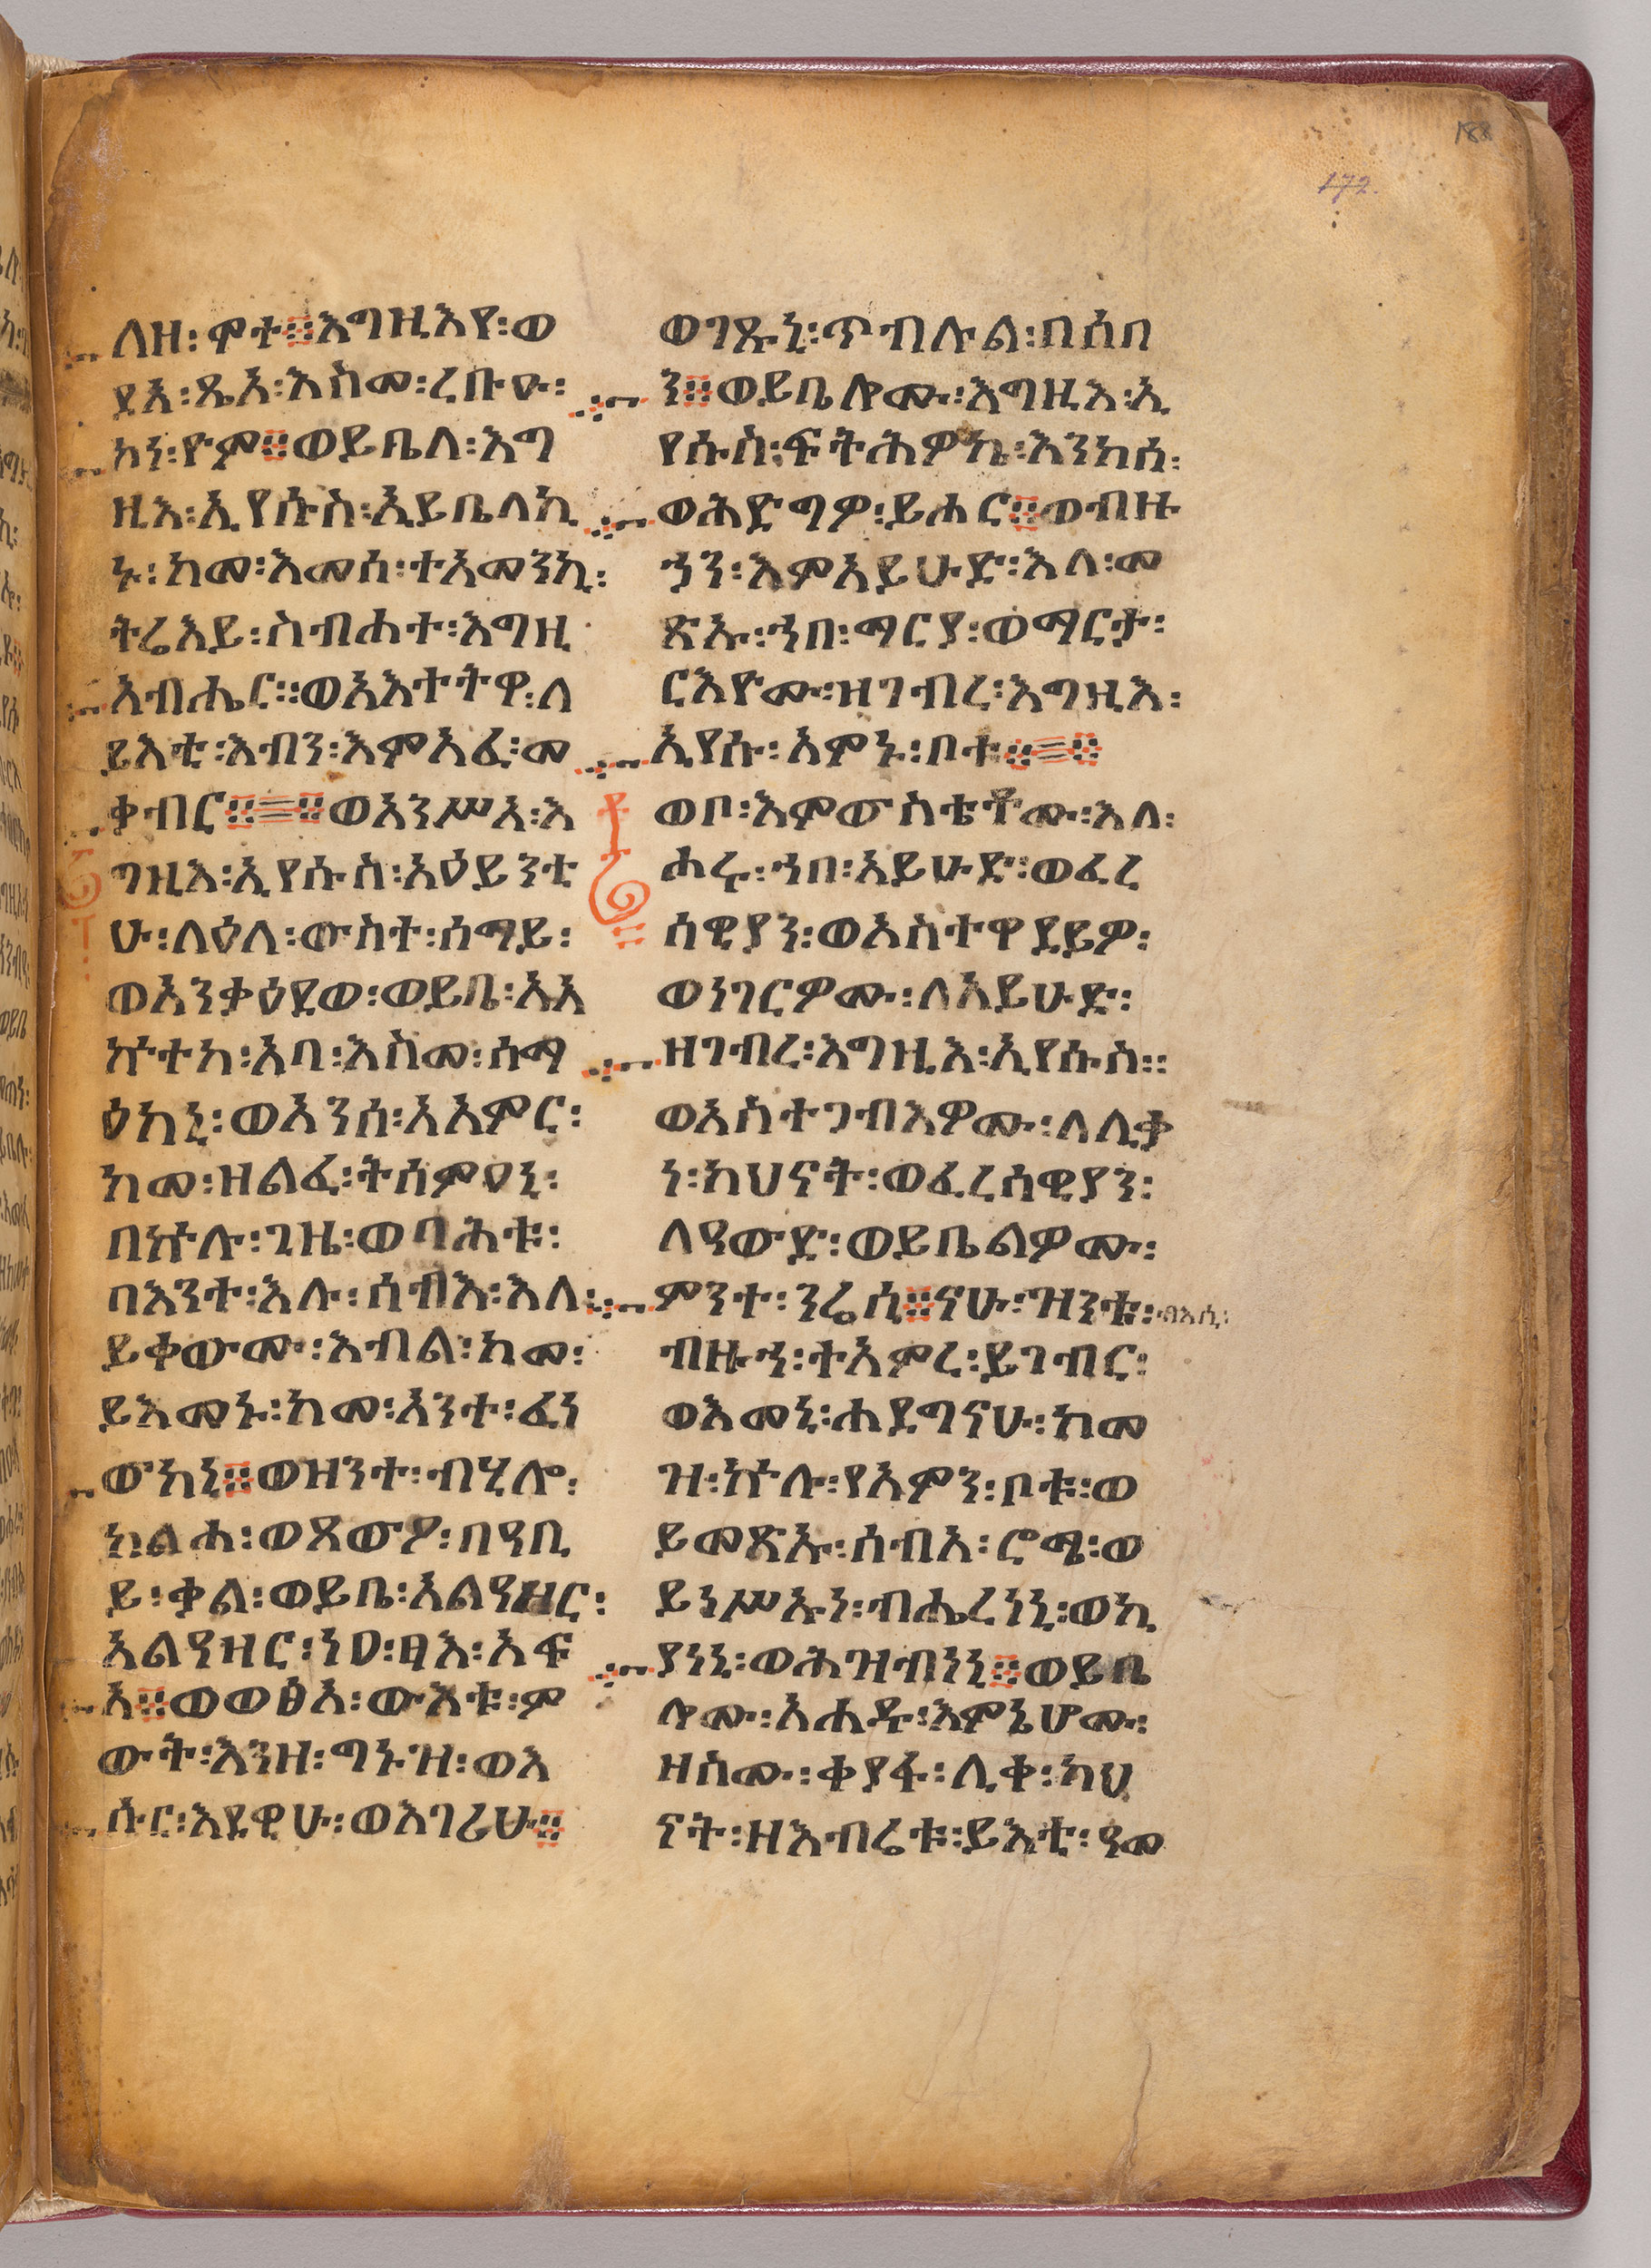 188
172.
ለዘ፡ሞተ፨እግዚእየ፡ወ
ደአ፡ጼአ፡እስመ፡ረቡዑ፡
ኮነ፡ዮም፨ወይቤላ፡እግ
ዚእ፡ኢየሱስ፡ኢይቤለኪ
ኑ፡ከመ፡እመሰ፡ተአመንኪ፡
ትሬእይ፡ስብሐተ፡እግዚ
አብሔር።ወአእተትዋ፡ለ
ይእቲ፡እብን፡እምአፈ፡መ
ቃብር፨፨ወአንሥአ፡እ
ግዚእ፡ኢየሱስ፡አዕይንቲ
ሁ፡ላዕለ፡ውስተ፡ሰማይ፡
ወአንቃዕደወ፡ወይቤ፡አአ
ኵተከ፡አባ፡እስመ፡ሰማ
ዕከኒ፡ወአንሰ፡አአምር፡
ከመ፡ዘልፈ፡ትሰምዐኒ፡
በኵሉ፡ጊዜ፡ወባሕቱ፡
በእንተ፡እሉ፡ሰብእ፡እለ፡
ይቀውሙ፡እብል፡ከመ፡
ይእመኑ፡ከመ፡አንተ፡ፈነ
ውከኒ፨ወዘንተ፡ብሂሎ፡
ከልሐ፡ወጸውዖ፡በዓቢ
ይ፡ቃል፡ወይቤ፡አልዓዛር፡
አልዓዛር፡ነዐ፡ፃእ፡አፍ
አ፨ወወፅአ፡ውእቱ፡ም
ውት፡እንዘ፡ግኑዝ፡ወእ
ሱር፡እደዊሁ፡ወእገሪሁ፨
ወገጹኒ፡ጥብሉል፡በሰበ
ን፨ወይቤሎሙ፡እግዚእ፡ኢ
የሱስ፡ፍትሕዎኬ፡እንከሰ፡
ወሕድግዎ፡ይሐር፨ወብዙ
ኃን፡እምአይሁድ፡እለ፡መ
ጽኡ፡ኀበ፡ማርያ፡ወማርታ፡
ርእዮሙ፡ዘገብረ፡እግዚእ፡
ኢየሱ፡አምኑ፡ቦቱ፨፨
ወቦ፡እምውስቴቶሙ፡እለ፡
ሐሩ፡ኀበ፡አይሁድ፡ወፈረ
ሰዊያን፡ወአስተዋደይዎ፡
ወነገርዎሙ፡ለአይሁድ፡
ዘገብረ፡እግዚእ፡ኢየሱስ።
ወአስተጋብእዎሙ፡ለሊቃ
ነ፡ካህናት፡ወፈረሰዊያን፡
ለዓውድ፡ወይቤልዎሙ፡
ምንተ፡ንሬሲ፨ናሁ፡ዝንቱ፡ብእሲ፡
ብዙኀ፡ተአምረ፡ይገብር፡
ወእመኒ፡ሐደግናሁ፡ከመ
ዝ፡ኵሉ፡የአምን፡ቦቱ፡ወ
ይመጽኡ፡ሰብአ፡ሮሜ፡ወ
ይነሥኡነ፡ብሔረነኒ፡ወኪ
ያነኒ፡ወሕዝብነኒ፨ወይቤ
ሎሙ፡አሐዱ፡እምኔሆሙ፡
ዘስሙ፡ቀያፋ፡ሊቀ፡ካህ
ናት፡ዘእብሬቱ፡ይእቲ፡ዓመ